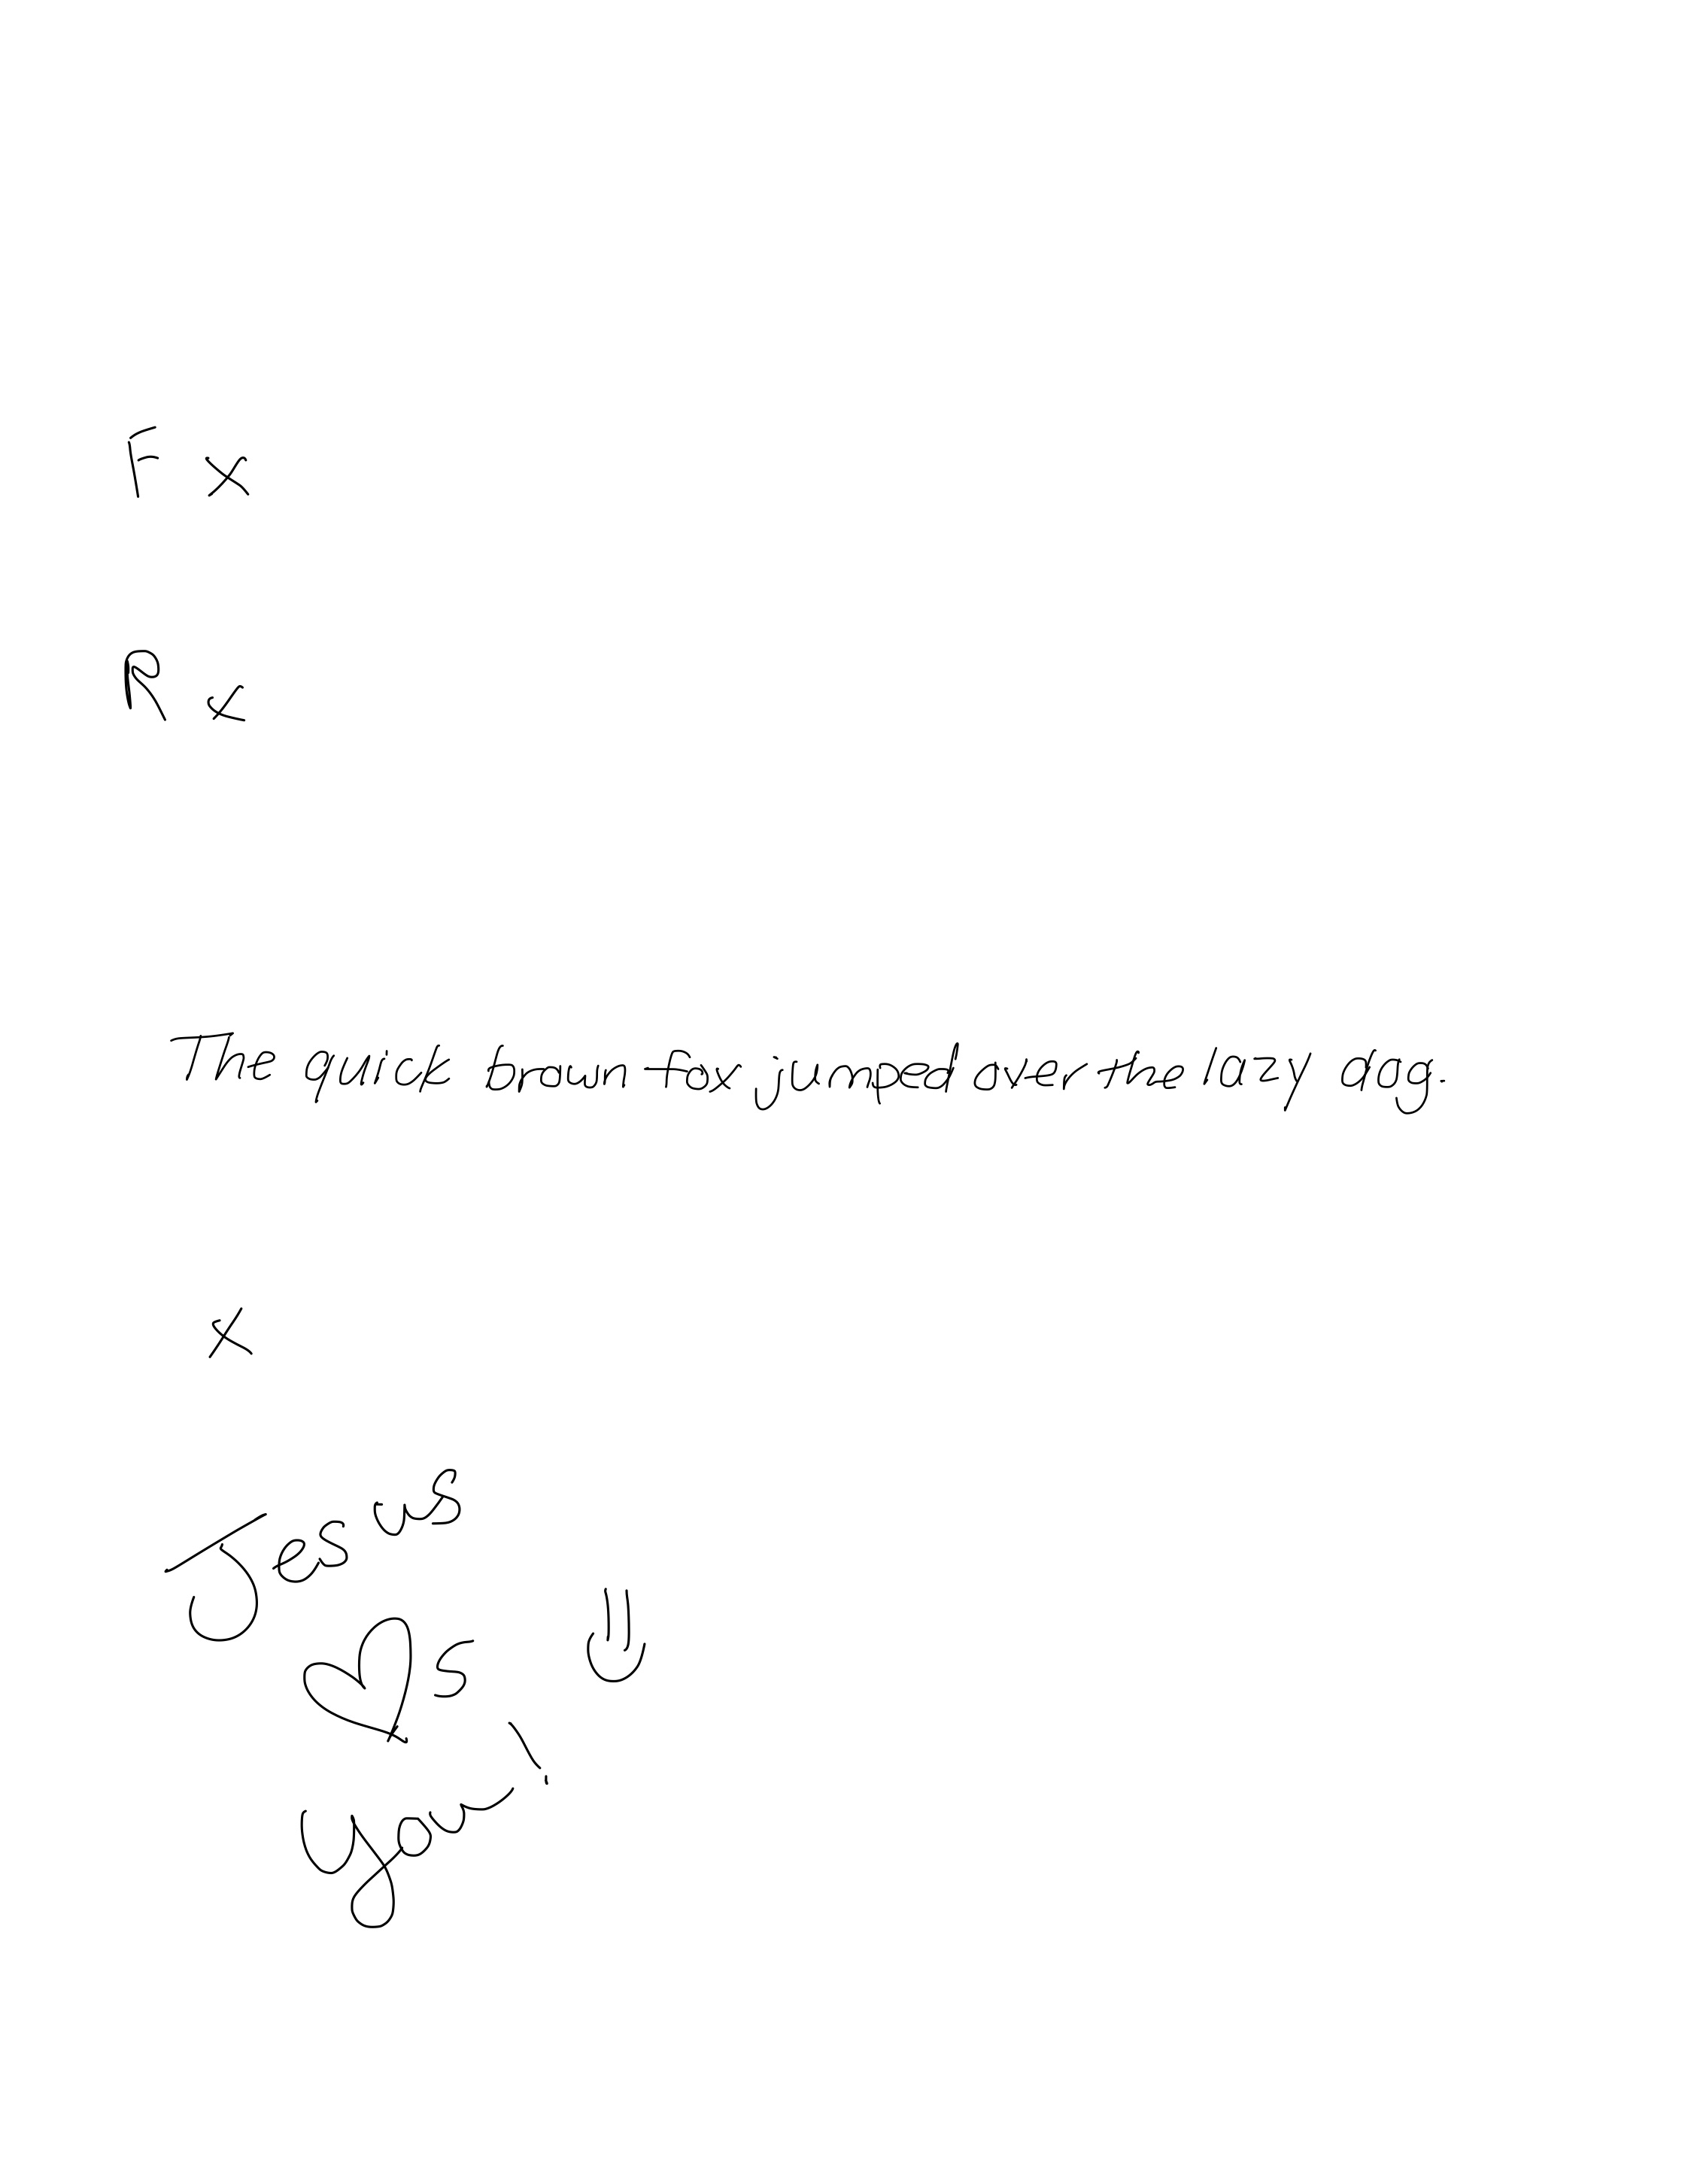 F x
R x
The quick brown fox jumped over the lazy dog.
x
Jesus
♡s
you!